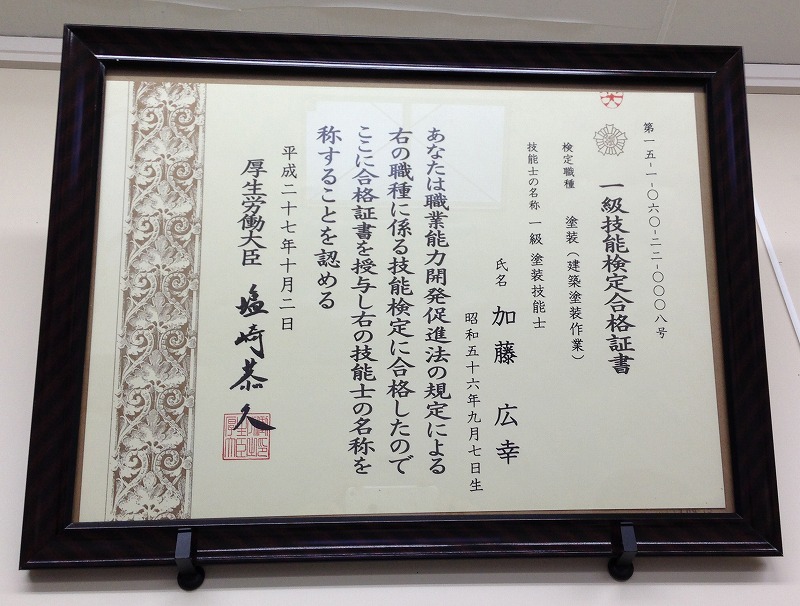 第一五-一-〇六〇-二二-〇〇〇八号
一級技能検定合格証書
検定職種 塗装(建築塗装作業)
技能士の名称 一級塗装技能士
氏名 加藤 広幸
昭和五十六年九月七日生
あなたは職業能力開発促進法の規定による
右の職種に係る技能検定に合格したので
ここに合格証書を授与し右の技能士の名称を
称することを認める
平成二十七年十月二日
厚生労働大臣 塩崎恭久